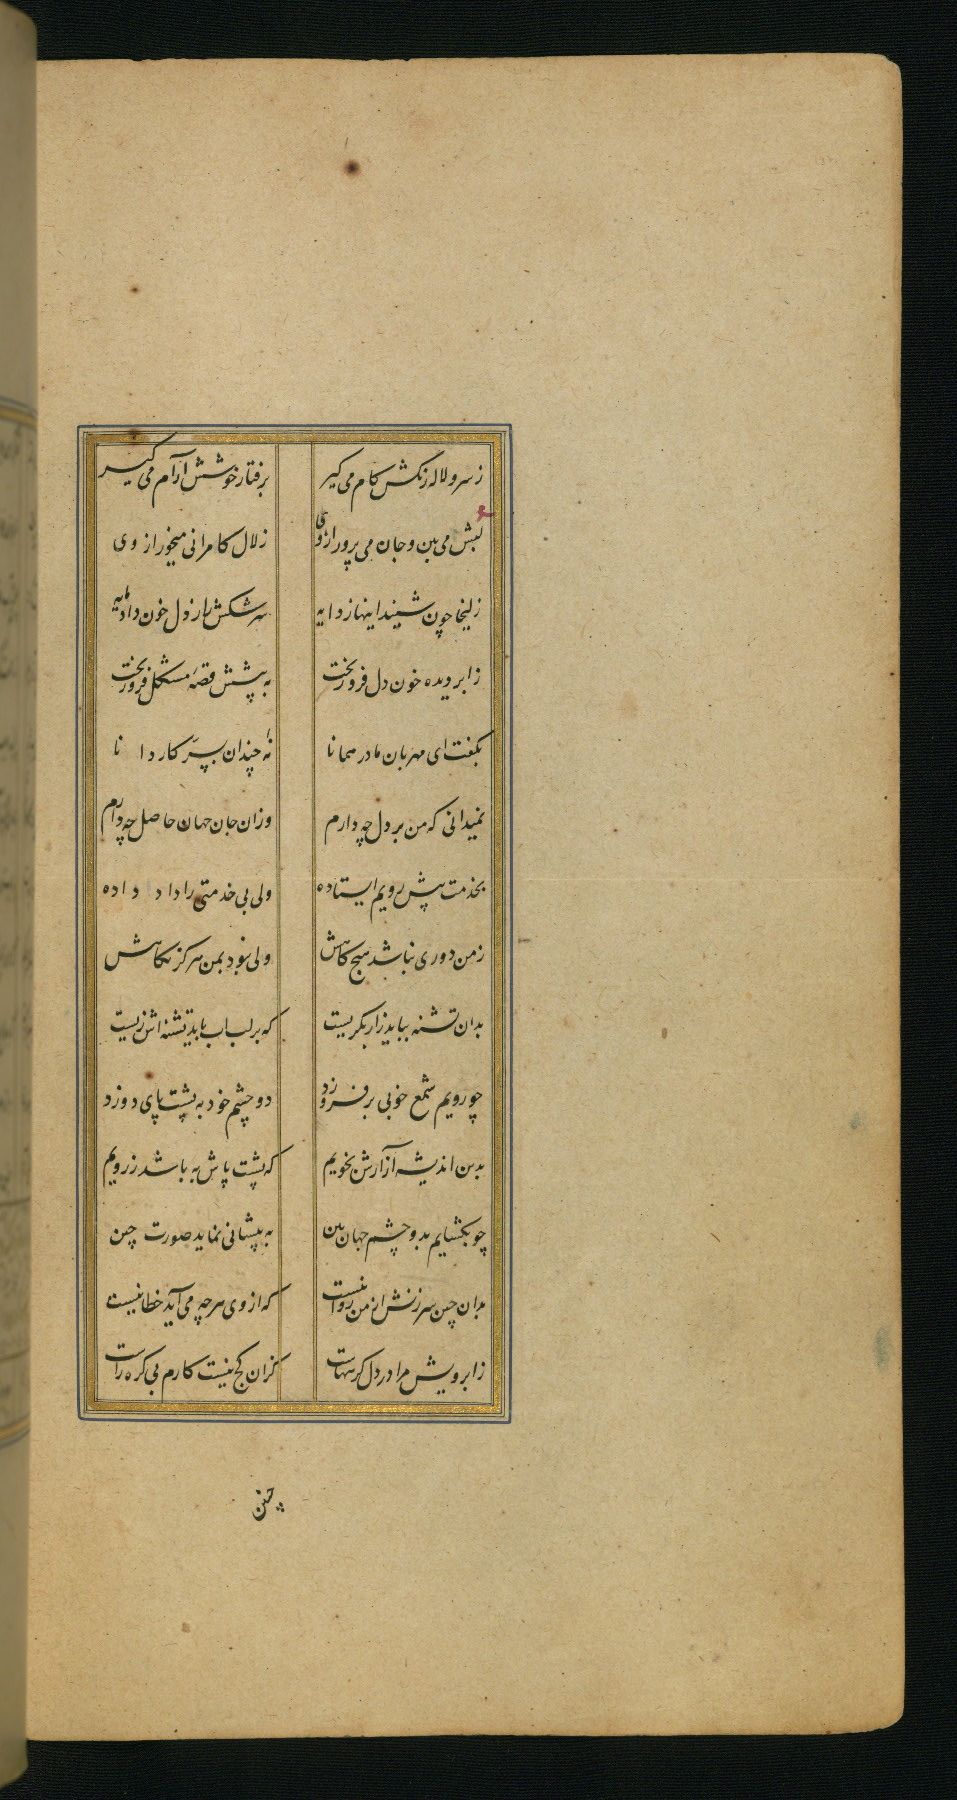 ز سرو لاله رنگش کام می گیر
برفتار خوشش آرام می گیر
لبش می بین و جان می پرور از وی
زلال کامرانی میخور از وی
زلیخا چون شنید اینها ز دایه
سرشکش را ز دل خون داد مایه
ز ابر دیده خون دل فرو ریخت
به پیشش قصه مشکل فرو ریخت
بگفت ای مهربان مادر همانا
نه چندان بسر کار دانا
نمیدانی که من بر دل چه دارم
وزان جان جهان حاصل چه دارم
بخدمت پیش رویم ایستاده
ولی بی خدمتی را داد داده
ز من دوری نباشد هیچ گاهش
ولی نبود بمن هرگز نگاهش
بدان تشنه بباید زار بگریست
که بر لب آب باید تشنه اش زیست
چو رویم شمع خوبی بر فروزد
دو چشم خود به پشت پای دوزد
بدین اندیشه آزارش نجویم
که پشت پاش به باشد ز رویم
چو بگشایم بدو چشم جهان بین
به پیشانی نماید صورت چین
بدان چین سرزنش از من روا نیست
که از وی هرچه می آید خطا نیست
ز ابرویش مرا در دل گرهاست
کزان کج نیست کارم بی گره راست
چنین